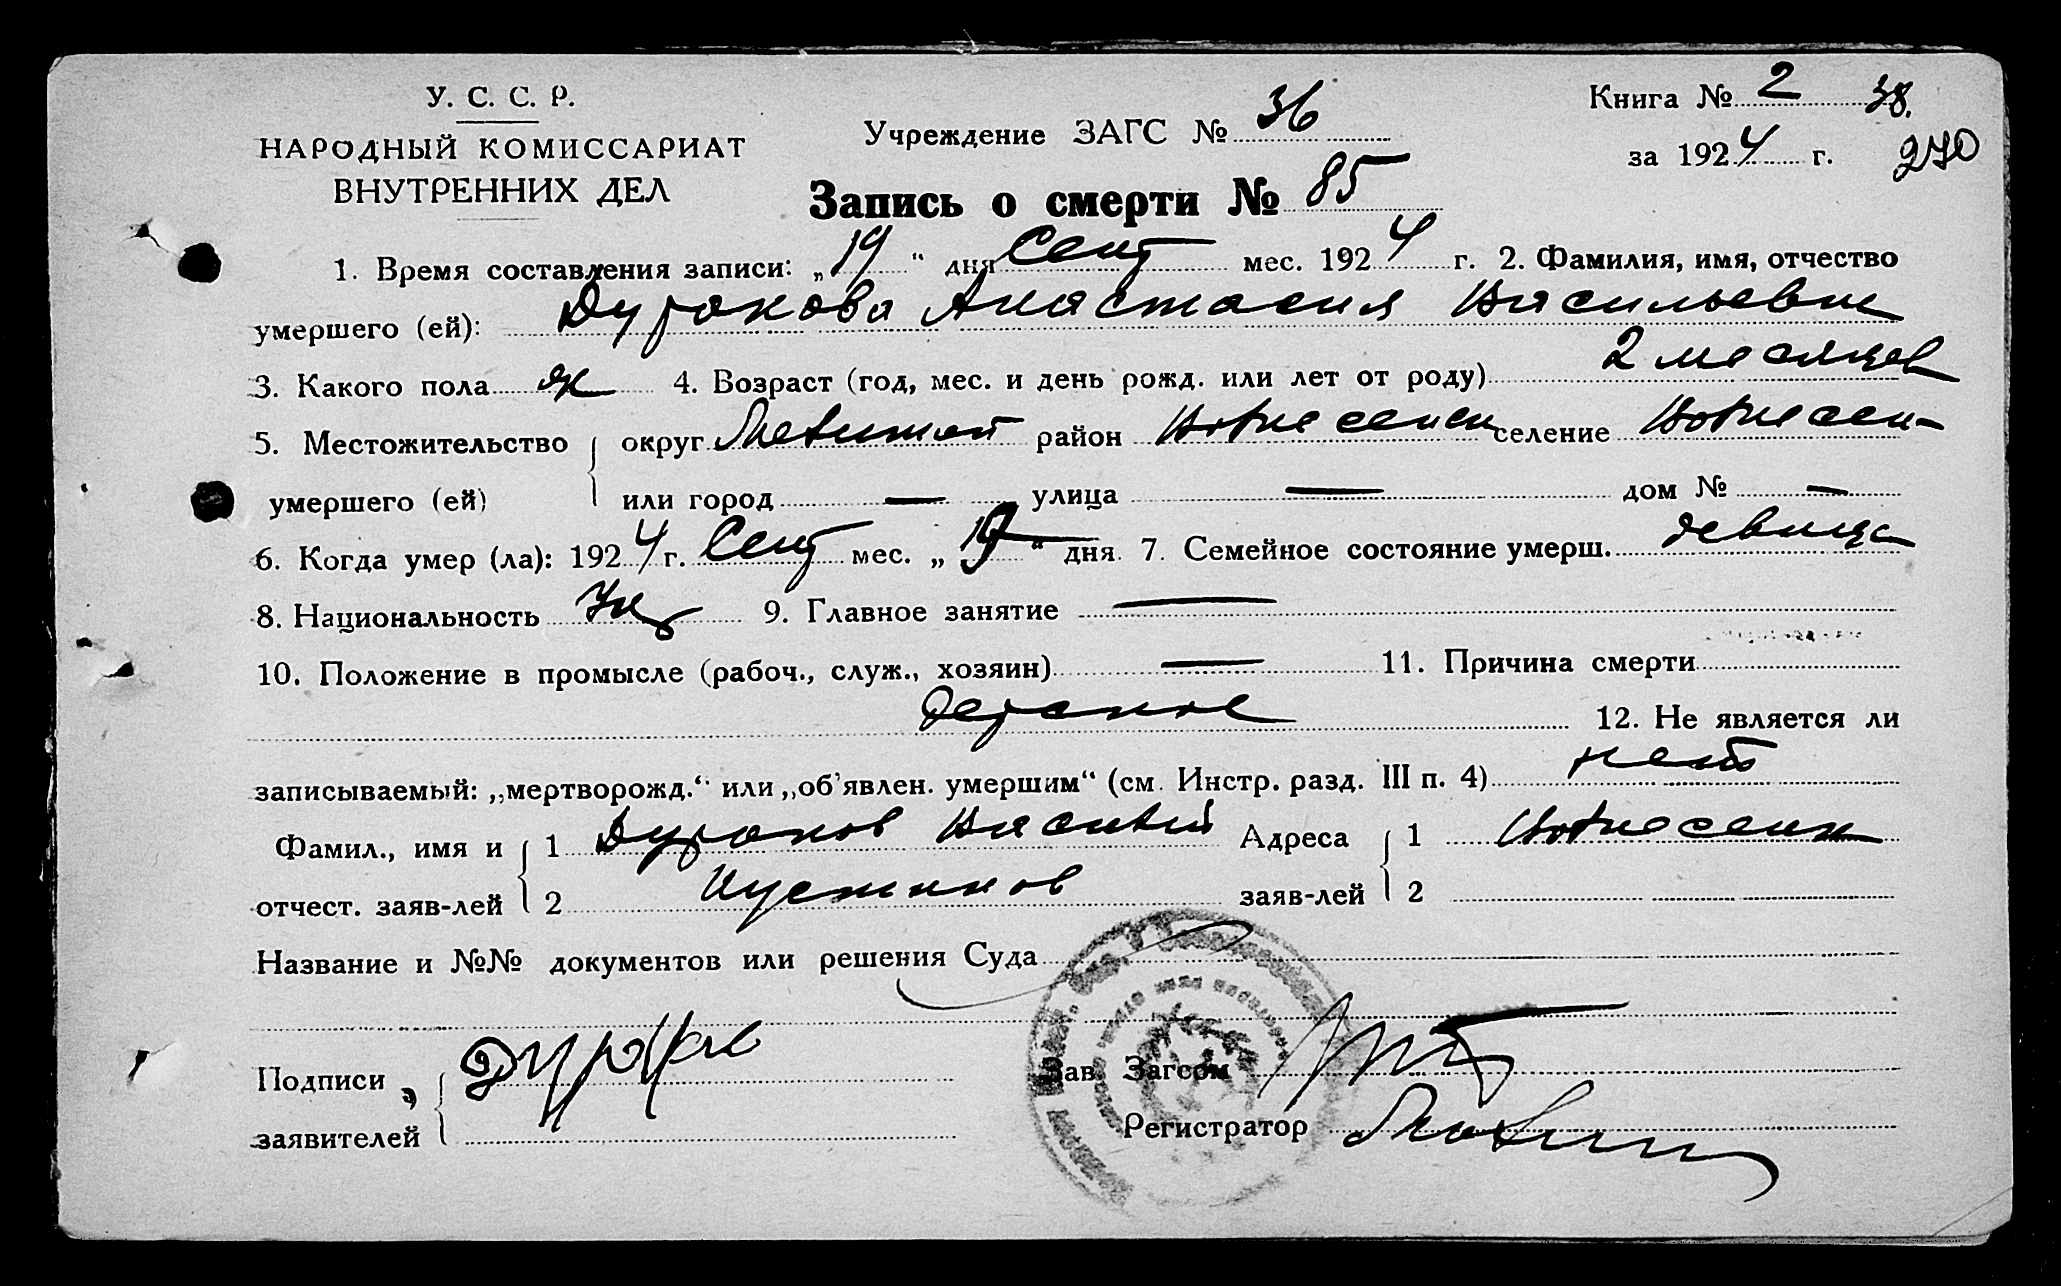 У. С. С. Р.
НАРОДНЫЙ КОМИССАРИАТ
ВНУТРЕННИХ ДЕЛ
Учреждение ЗАГС № 36
Книга № 2 38.
за 1924 г. 270
Запись о смерти № 85
1. Время составления записи: „19“ дня Сент мес. 1924 г. 2. Фамилия, имя, отчество
умершего (ей): Дуракова Анастасия Васильевн
3. Какого пола ж 4. Возраст (год, мес. и день рожд. или лет от роду) 2 месяцев
5. Местожительство округ район Вознесенск селение Вознесен-
умершего (ей) или город — улица — дом № —
6. Когда умер (ла): 1924 г. Сент мес. „ “ дня. 7. Семейное состояние умерш. девица
8. Национальность Ук 9. Главное занятие —
10. Положение в промысле (рабоч., служ., хозяин) — 11. Причина смерти
12. Не является ли
записываемый: „мертворожд.“ или „об'явлен. умершим“ (см. Инстр. разд. III п. 4) нет
Фамил., имя и 1 Дураков Василий Адреса 1 Вознесенк
отчест. заяв-лей 2 Иустинов заяв-лей 2
Название и №№ документов или решения Суда
Подписи Зав. Загсом
заявителей Регистратор